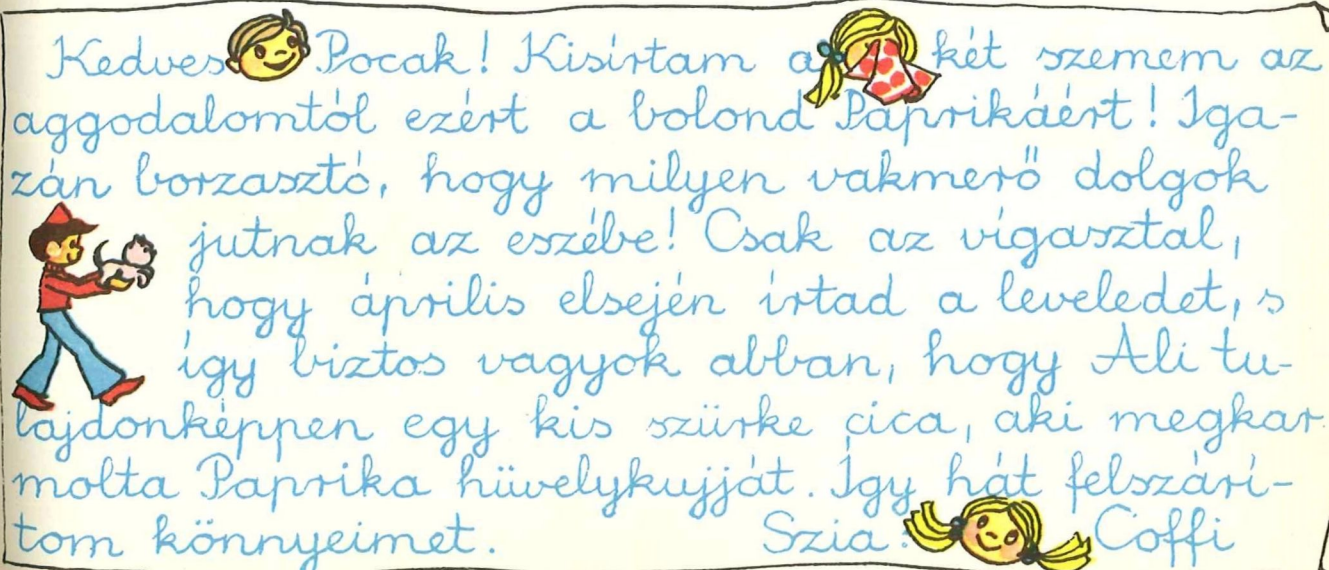 Kedves Pocak! Kisírtam a két szemem az
aggodalomtól ezért a bolond Paprikáért! Iga-
zán borzasztó, hogy milyen vakmerő dolgok
jutnak az eszébe! Csak az vígasztal,
hogy április elsején írtad a leveledet, s
így biztos vagyok abban, hogy Ali tu-
lajdonképpen egy kis szürke cica, aki megkar
molta Paprika hüvelykujját. Így hát felszárí-
tom könnyeimet. Szia: Coffi